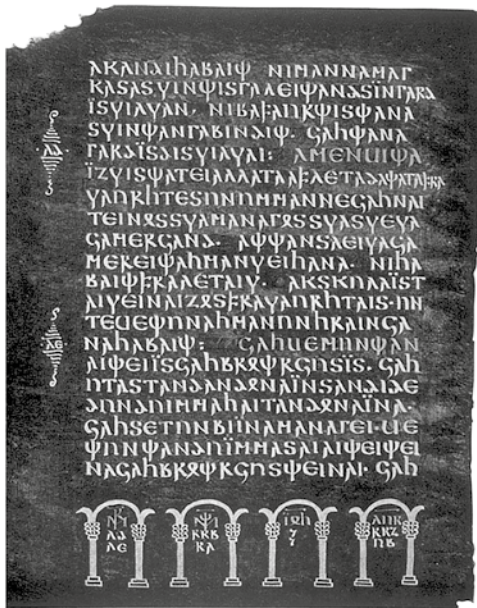 𐌰𐌺𐌰𐌽𐌳𐌹𐌷𐌰𐌱𐌰𐌹𐌸 𐌽𐌹𐌼𐌰𐌽𐌽𐌰𐌼𐌰𐌲
𐌺𐌰𐍃𐌰𐍃𐍅𐌹𐌽𐌸𐌹𐍃𐌲𐌰𐌻𐌴𐌹𐌸𐌰𐌽𐌳𐍃𐌹̈𐌽𐌲𐌰𐍂𐌳
𐌹̈𐍃𐍅𐌹𐌻𐍅𐌰𐌽· 𐌽𐌹𐌱𐌰𐍆𐌰𐌿𐍂𐌸𐌹𐍃𐌸𐌰𐌽𐌰
𐍃𐍅𐌹𐌽𐌸𐌰𐌽𐌲𐌰𐌱𐌹𐌽𐌳𐌹𐌸· 𐌾𐌰𐌷𐌸𐌰𐌽𐌰
𐌲𐌰𐍂𐌳𐌹̈𐍃𐌳𐌹𐍃𐍅𐌹𐌻𐍅𐌰𐌹: 𐌰𐌼𐌴𐌽𐌵𐌹𐌸𐌰
𐌻𐌳
𐌹̈𐌶𐍅𐌹𐍃𐌸𐌰𐍄𐌴𐌹𐌰𐌻𐌻𐌰𐍄𐌰𐌰𐍆𐌻𐌴𐍄𐌰𐌳𐌰𐌸𐌰𐍄𐌰𐍆𐍂𐌰
𐍅𐌰𐌿𐍂𐌷𐍄𐌴𐍃𐌿𐌽𐌿𐌼𐌼𐌰𐌽𐌽𐌴𐌾𐌰𐌷𐌽𐌰𐌹
𐍄𐌴𐌹𐌽𐍉𐍃𐍃𐍅𐌰𐌼𐌰𐌽𐌰𐌲𐍉𐍃𐍃𐍅𐌰𐍃𐍅𐌴𐍅𐌰
𐌾𐌰𐌼𐌴𐍂𐌾𐌰𐌽𐌳· 𐌰𐌸𐌸𐌰𐌽𐍃𐌰𐌴𐌹𐍅𐌰𐌾𐌰
𐌼𐌴𐍂𐌴𐌹𐌸𐌰𐌷𐌼𐌰𐌽𐍅𐌴𐌹𐌷𐌰𐌽𐌰· 𐌽𐌹𐌷𐌰
𐌱𐌰𐌹𐌸𐍆𐍂𐌰𐌻𐌴𐍄𐌰𐌹𐍅· 𐌰𐌺𐍃𐌺𐌿𐌻𐌰𐌹̈𐍃𐍄
𐌰𐌹𐍅𐌴𐌹𐌽𐌰𐌹𐌶𐍉𐍃𐍆𐍂𐌰𐍅𐌰𐌿𐍂𐌷𐍄𐌰𐌹𐍃· 𐌿𐌽
𐍄𐌴𐌵𐌴𐌸𐌿𐌽𐌰𐌷𐌼𐌰𐌽𐌿𐌽𐌷𐍂𐌰𐌹𐌽𐌾𐌰
𐌽𐌰𐌷𐌰𐌱𐌰𐌹𐌸: 𐌾𐌰𐌷𐌵𐌴𐌼𐌿𐌽𐌸𐌰𐌽
𐌻𐌴
𐌰𐌹𐌸𐌴𐌹𐌹̈𐍃𐌾𐌰𐌷𐌱𐍂𐍉𐌸𐍂𐌾𐌿𐍃𐌹̈𐍃· 𐌾𐌰𐌷
𐌿𐍄𐌰𐍃𐍄𐌰𐌽𐌳𐌰𐌽𐌳𐍉𐌽𐌰𐌹̈𐌽𐍃𐌰𐌽𐌳𐌹𐌳𐌴
𐌳𐌿𐌽𐌳𐌿𐌹̈𐌼𐌼𐌰𐌷𐌰𐌹𐍄𐌰𐌽𐌳𐍉𐌽𐌰𐌹̈𐌽𐌰·
𐌾𐌰𐌷𐍃𐌴𐍄𐌿𐌽𐌱𐌹𐌹𐌽𐌰𐌼𐌰𐌽𐌰𐌲𐌴𐌹· 𐌵𐌴
𐌸𐌿𐌽𐌸𐌰𐌽𐌳𐌿𐌹̈𐌼𐌼𐌰𐍃𐌰𐌹𐌰𐌹𐌸𐌴𐌹𐌸𐌴𐌹
𐌽𐌰𐌾𐌰𐌷𐌱𐍂𐍉𐌸𐍂𐌾𐌿𐍃𐌸𐌴𐌹𐌽𐌰𐌹· 𐌾𐌰𐌷
𐌹𐍉𐌷
𐌻𐌳
𐌻𐌴